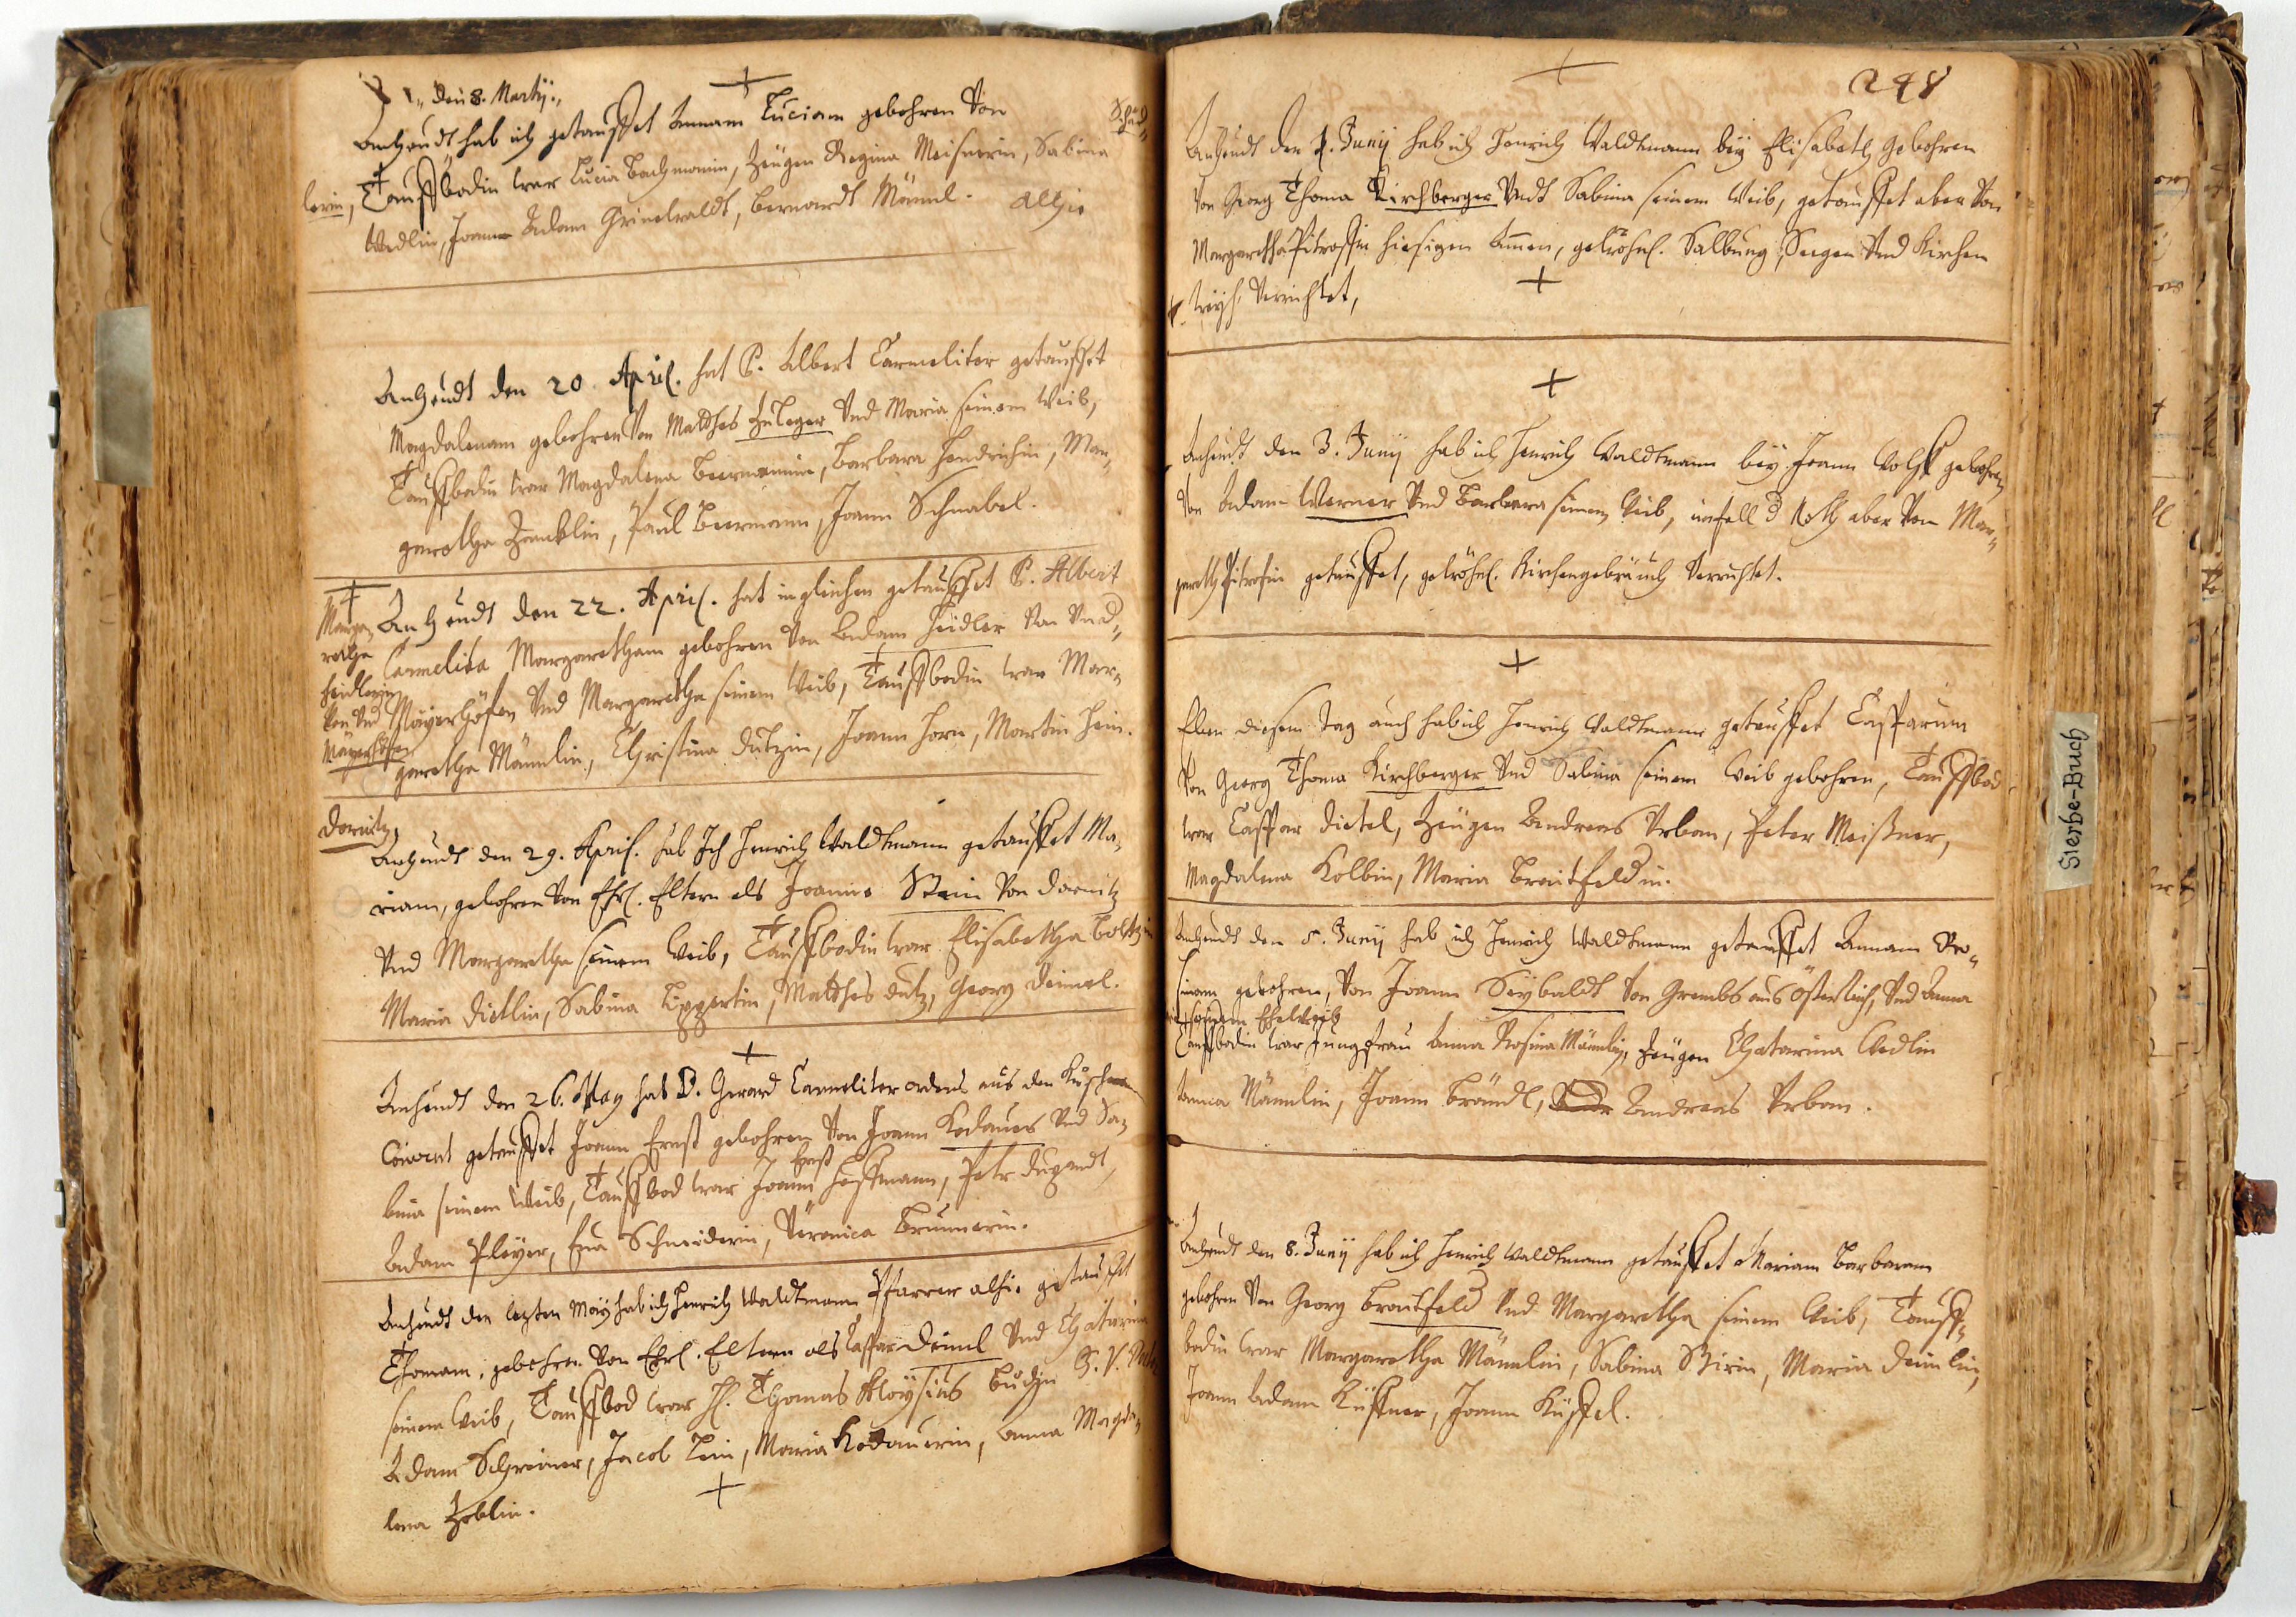 den 8. Martij.
Anheudt hab ich getauffet Annam Luciam gebohren von
Schind-
lerin, Tauffbodin war Lucia Bachmanin, Zeugen Regina Meisnerin, Sabina
Wedlin, Joann Adam Grinelwaldt, Bernardt Männl. Alhie
Anheudt den 20 April. hat P. Albert Carmeliter getauffet
Magdalenam gebohren von Matthes Zuleger Und Maria seinem Weib,
Tauffbodin war Magdalena Beermanin, Barbara Hendrichin, Mar-
garetha Zencklin, Paul Beermann, Joann Schnabel.
Anheudt den 22. April. hat ingleichen getauffet P. Albert
Carmelita Margaretham gebohren von Adam Heidler von Und-
Mayerhöfen Und Margaretha seinem Weib, Tauffbodin war Mar-
garetha Männlin, Christina Dutzin, Joann Horn, Martin Hein.
Marga-
retha
Heidlerin
von Und
Mayerhöfen
Dornitz
Anheudt den 29. April. hab Ich Henrich Waldtmann getauffet Ma-
riam, gebohren von Ehrl. Eltern als Joanne Stain von Dornitz
Und Margaretha seinem Weib, Tauffbodin war Elisabetha Boltzin
Maria Dietlin, Sabina Lippertin, Matthes Dutz, Georg Deimel.
Anheudt den 26. May hat P. Gerard Carmeliter ordens aus den
Convent getauffet Joann Ernst gebohren von Joann Kodauer Und Sa-
bina seinem Weib, Tauffbod war Joann Ernst Hoffmann, Petr Dugendt,
Adam Ployer, Eva Schneiderin, Veronica Brunnerin.
Anheudt den letzten May hab ich Henrich Waldtmann Pfarrer alhie getauffet
Thomam, gebohren von Ehrl. Eltern als Caspar Deiml Und Chatarina
seinem Weib, Tauffbod war H. Thomas Aloysius
Adam Schreiner, Jacob Lein, Maria Kodauerin, Anna Magda-
lena Zeblin.
248
Anheudt den 1. Junij hab ich Henrich Waldtmann bey Elisabeth Gebohren
Von Georg Thoma Kirchberger Undt Sabina seinem Weib, getauffet aber von
Margaretha Pitroffin hiesigen Ammen, gewöhnl. Salbung, Seegen Und Kirchen
verrichtet,
Anheudt den 3. Junij hab ich Henrich Waldtmann bey Joann Wolff gebohren
Von Adam Werner Und Barbara seinem Weib, infall d. Noth aber von Mar-
gareth Pitrofin getauffet, gewöhnl. Kirchengebräuch verrichtet.
Eben diesem tag auch hab ich Henrich Waldtmann getauffet Casparum
Von Georg Thoma Kirchberger Und Sabina seinem Weib gebohren, Tauffbod
war Caspar Dietel, Zeugen Andreas Urban, Peter Meißner,
Magdalena Kolbin, Maria Breitfeldin.
Anheudt den 5. Junij hab ich Henrich Waldtmann getauffet Annam Ro-
sinam gebohren, von Joann Seybaldt von Grembs aus Österreich, Und Anna
seinem Eheweib
Tauffbodin war Jungfrau Anna Rosina Männlin, Zeugen Chatarina Wedlin
Anna Männlin, Joann Brändl, Andreas Urban.
Anheudt den 8. Junij hab ich Henrich Waldtmann getauffet Mariam Barbaram
gebohren von Georg Breitfeld Und Margaretha seinem Weib, Tauff-
bodin war Margaretha Männlin, Sabina Stirin, Maria Deimlin,
Joann Adam Küffner, Joann Küffel.
Sterbe-Buch